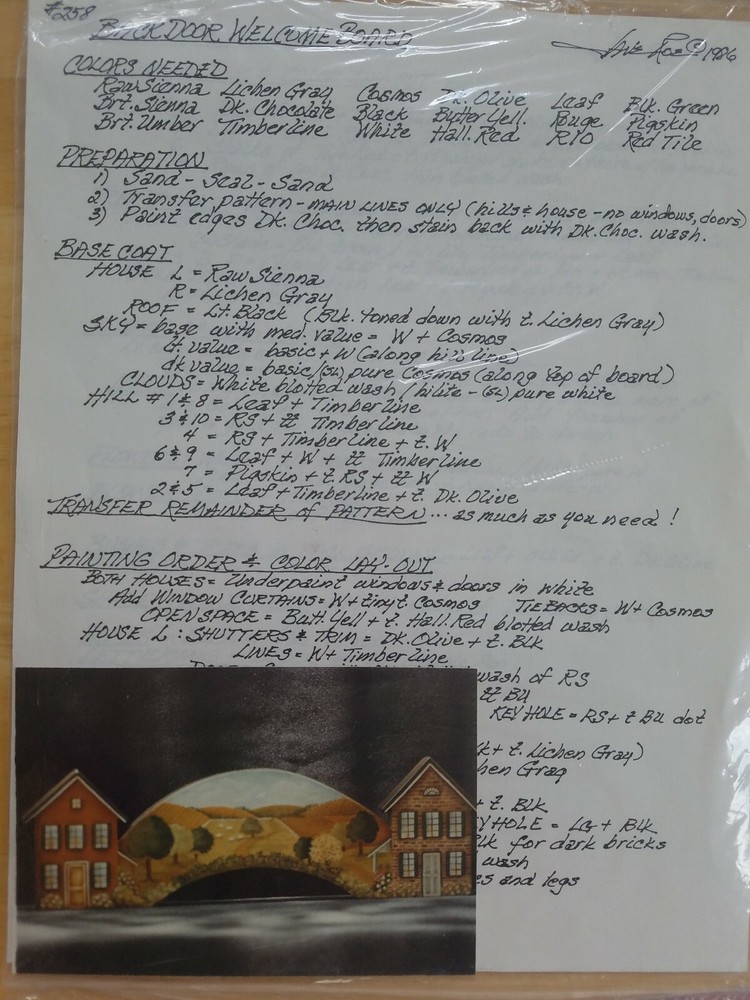 #258
BACK DOOR WELCOME BOARD
1986
COLORS NEEDED
Raw Sienna Lichen Gray Cosmos Dk. Olive Leaf Blk. Green
Brt. Sienna Dk. Chocolate Black Butter Yell. Rouge Pigskin
Brt. Umber Timberline White Hall. Red R10 Red Tile
PREPARATION
1) Sand - Seal - Sand
2) Transfer pattern - MAIN LINES ONLY (hills & house - no windows, doors)
3) Paint edges Dk. Choc. then stain back with Dk. Choc. wash.
BASE COAT
HOUSE L = Raw Sienna
R = Lichen Gray
ROOF = Lt. Black (Blk. toned down with t. Lichen Gray)
SKY = base with med. value = W + Cosmos
lt. value = basic + W (along hill line)
dk value = basic/(SL) pure Cosmos (along top of board)
CLOUDS = White blotted wash / hilite - (SL) pure white
HILL # 1 & 8 = Leaf + Timberline
3 & 10 = RS + tt Timberline
4 = RS + Timberline + t. W
6 & 9 = Leaf + W + tt Timberline
7 = Pigskin + t. RS + tt W
2 & 5 = Leaf + Timberline + t. Dk. Olive
TRANSFER REMAINDER of PATTERN ... as much as you need!
PAINTING ORDER & COLOR LAY-OUT
BOTH HOUSES = Underpaint windows & doors in white
Add WINDOW CURTAINS = W + tiny t. Cosmos TIEBACKS = W + Cosmos
OPEN SPACE = Butt. Yell + t. Hall. Red blotted wash
HOUSE L : SHUTTERS & TRIM = Dk. Olive + t. Blk
LINES = W + Timberline
wash of RS
tt BU
KEY HOLE = RS + t BU dot
k + t. Lichen Gray)
hen Gray
+ t. Blk
YHOLE = LG + Blk
lk for dark bricks
wash
es and legs